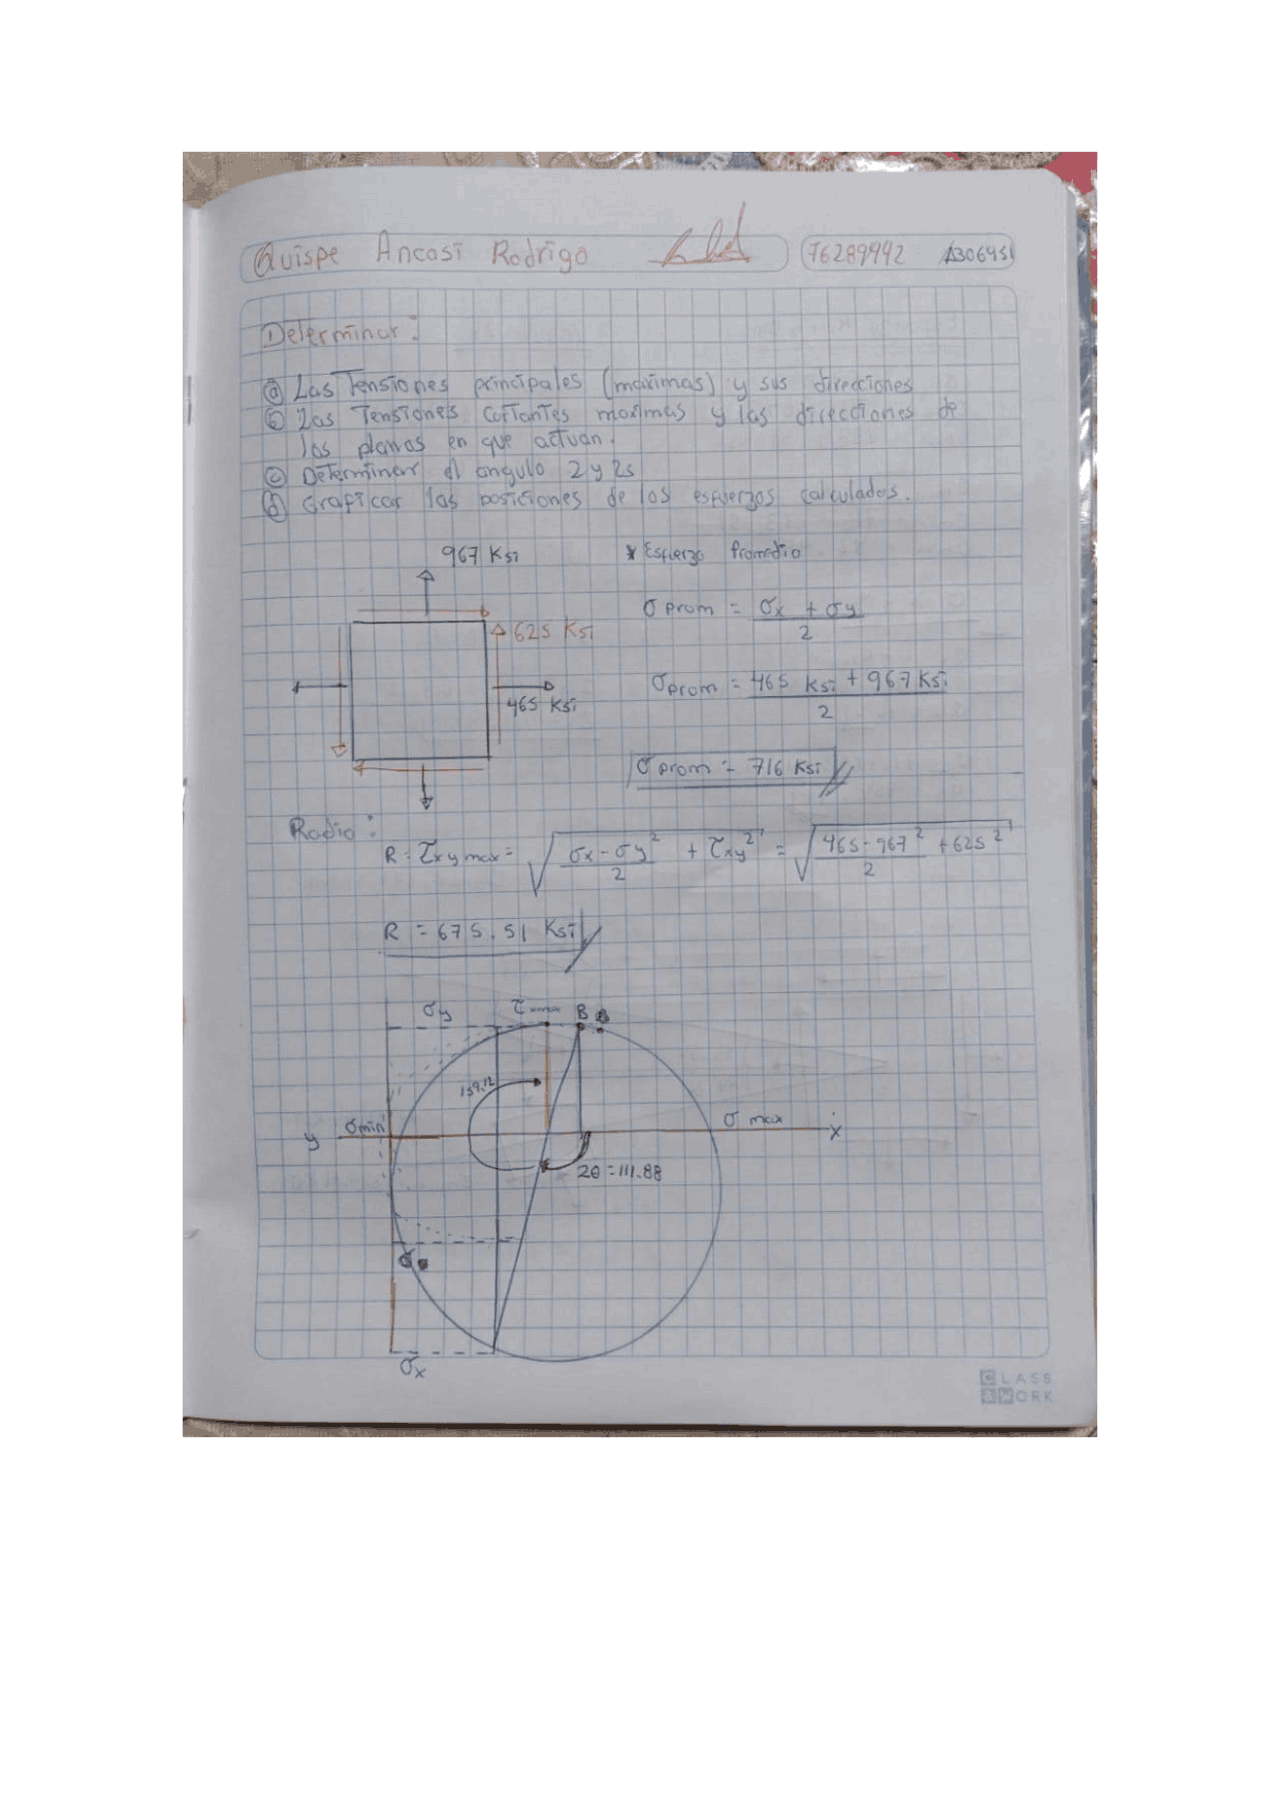 Quispe Ancasi Rodrigo 76289942 A306451
Determinar:
ⓐ Las Tensiones principales (maximas) y sus direcciones
ⓑ Las Tensiones Cortantes maximas y las direcciones de
los planos en que actuan.
ⓒ Determinar el angulo 2 y 2s
ⓓ Graficar las posiciones de los esfuerzos calculados.
967 Ksi
* Esfuerzo Promedio
σ Prom = σx + σy / 2
625 Ksi
σprom = 465 Ksi + 967 Ksi / 2
465 Ksi
σ prom = 716 Ksi
Radio:
R = τxy max = √ σx - σy / 2 ² + τxy² = √ 465 - 967 / 2 ² + 625²
R = 675.51 Ksi
σy τ max B
159.12
y σmin σ max x
2θ = 111.88
σx
CLASS
&WORK